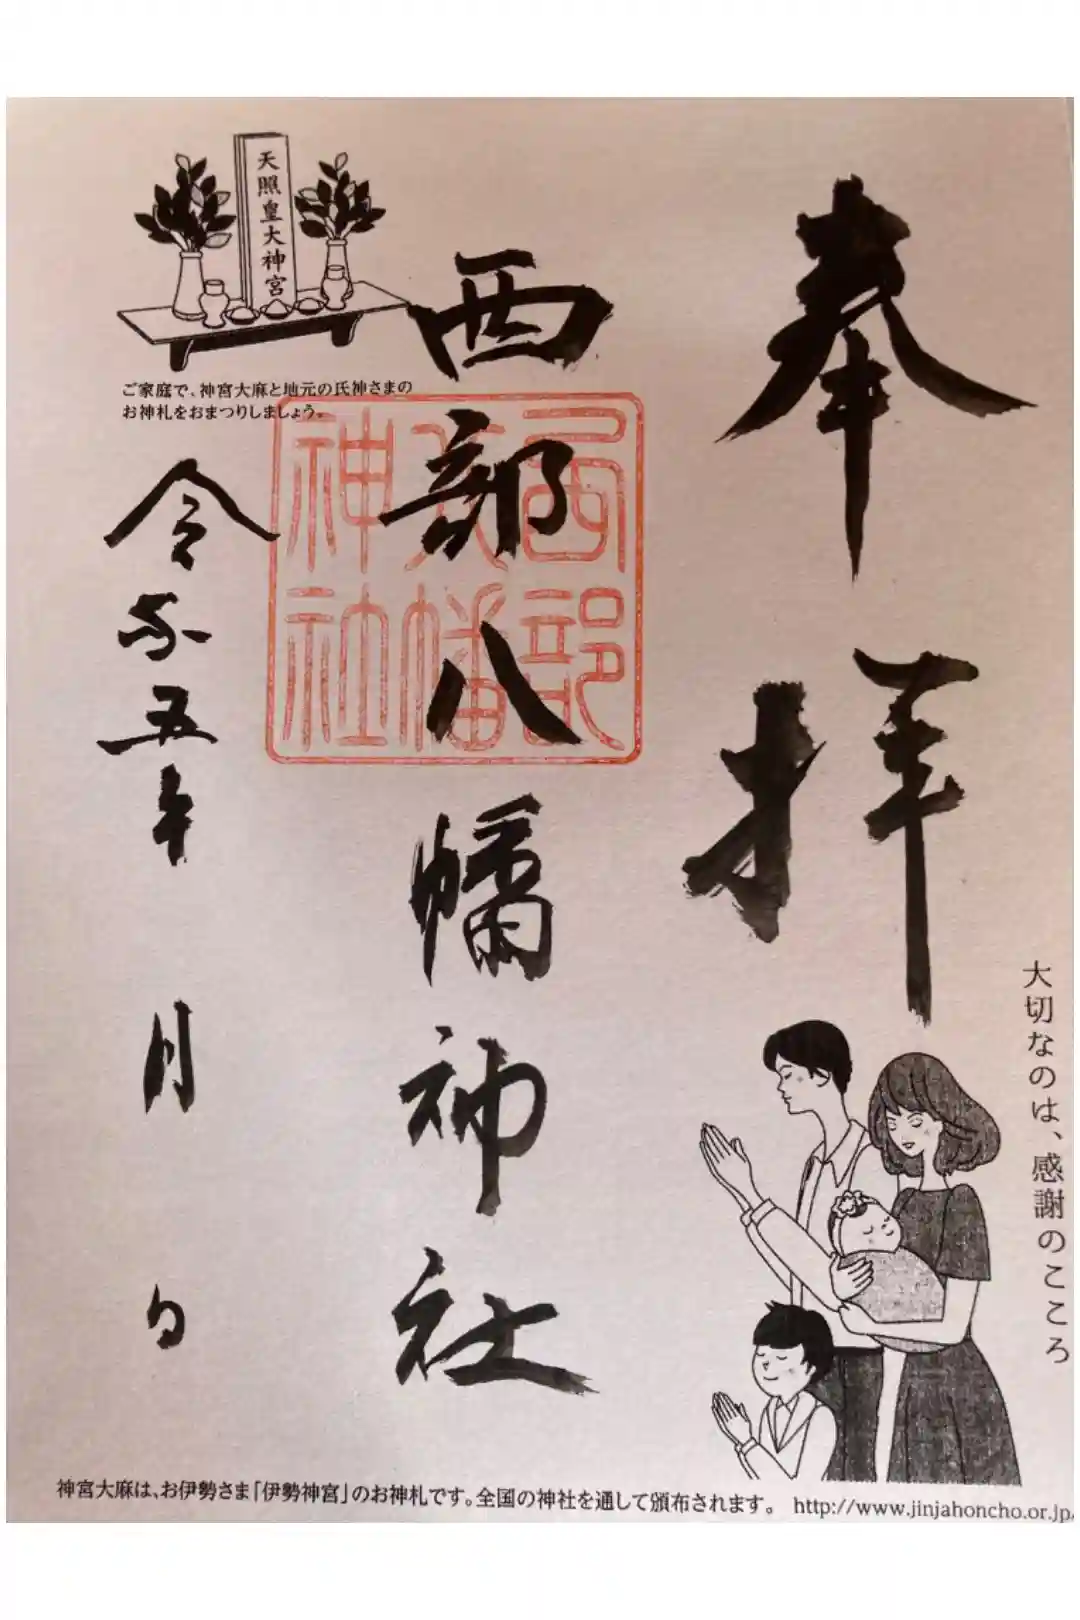 奉拝
大切なのは、感謝のこころ
西部八幡神社
西部
八幡
神社
天照皇大神宮
ご家庭で、神宮大麻と地元の氏神さまの
お神札をおまつりしましょう。
令和五年 月 日
神宮大麻は、お伊勢さま「伊勢神宮」のお神札です。全国の神社を通して頒布されます。 http://www.jinjahoncho.or.jp/